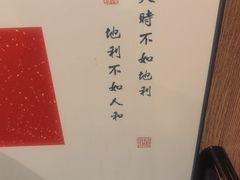 天時不如地利
地利不如人和